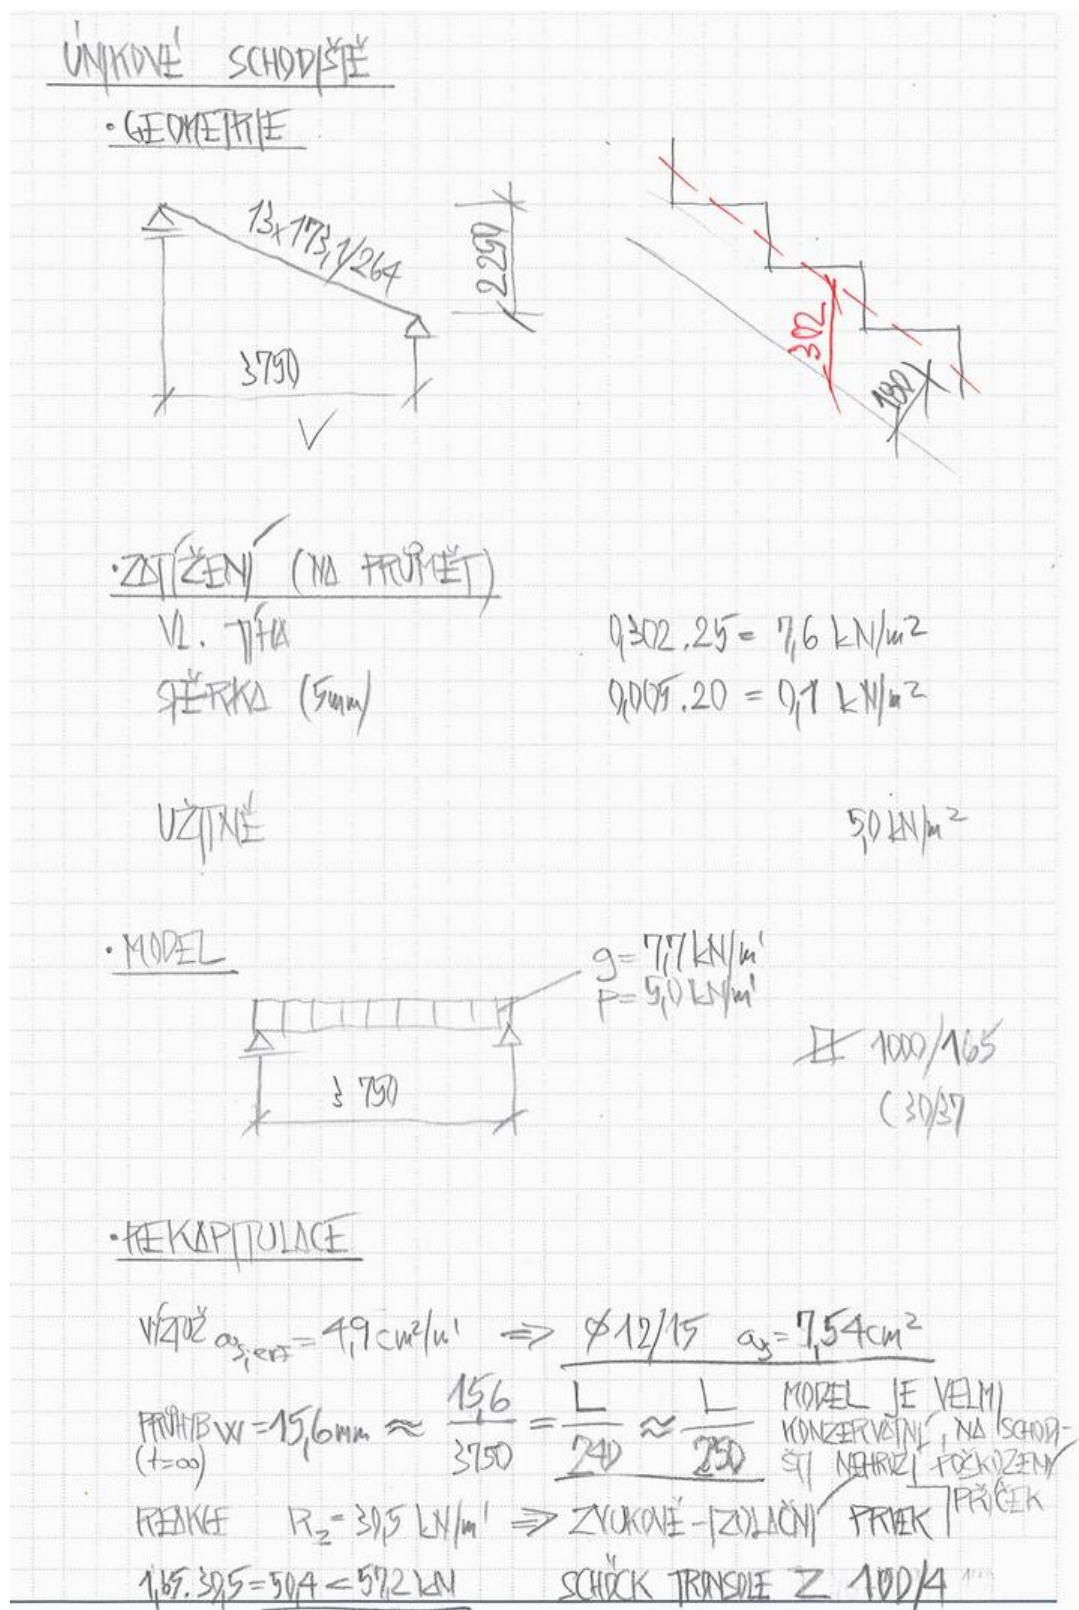 ÚNIKOVÉ SCHODIŠTĚ
• GEOMETRIE
13x173,1/264
2250
3750
302
180
• ZATÍŽENÍ (NA PRŮMĚT)
VL. TÍHA 0,302.25 = 7,6 kN/m²
STĚRKA (5mm) 0,005.20 = 0,1 kN/m²
UŽITNÉ 5,0 kN/m²
• MODEL
g= 7,7 kN/m'
p= 5,0 kN/m'
3 750
1000/165
C 30/37
• REKAPITULACE
VÝZTUŽ as, = 4,9 cm²/m' => Ø12/15 as= 7,54 cm²
PRŮHYB w = 15,6mm ≈ 15,6/3750 = L/240 ≈ L/250
(t=∞)
MODEL JE VELMI
KONZERVATIVNÍ, NA SCHODI-
ŠTI NEHROZÍ POŠKOZENÍ
PŘÍČEK
REAKCE Rz = 30,5 kN/m' => ZVUKOVĚ-IZOLAČNÍ PRVEK
1,65.30,5 = 50,4 < 57,2 kN SCHÖCK TRONSOLE Z 100/4